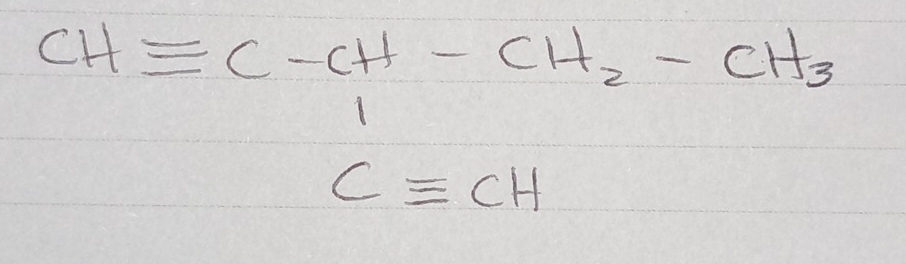 CH≡C-CH-CH₂-CH₃
|
C≡CH